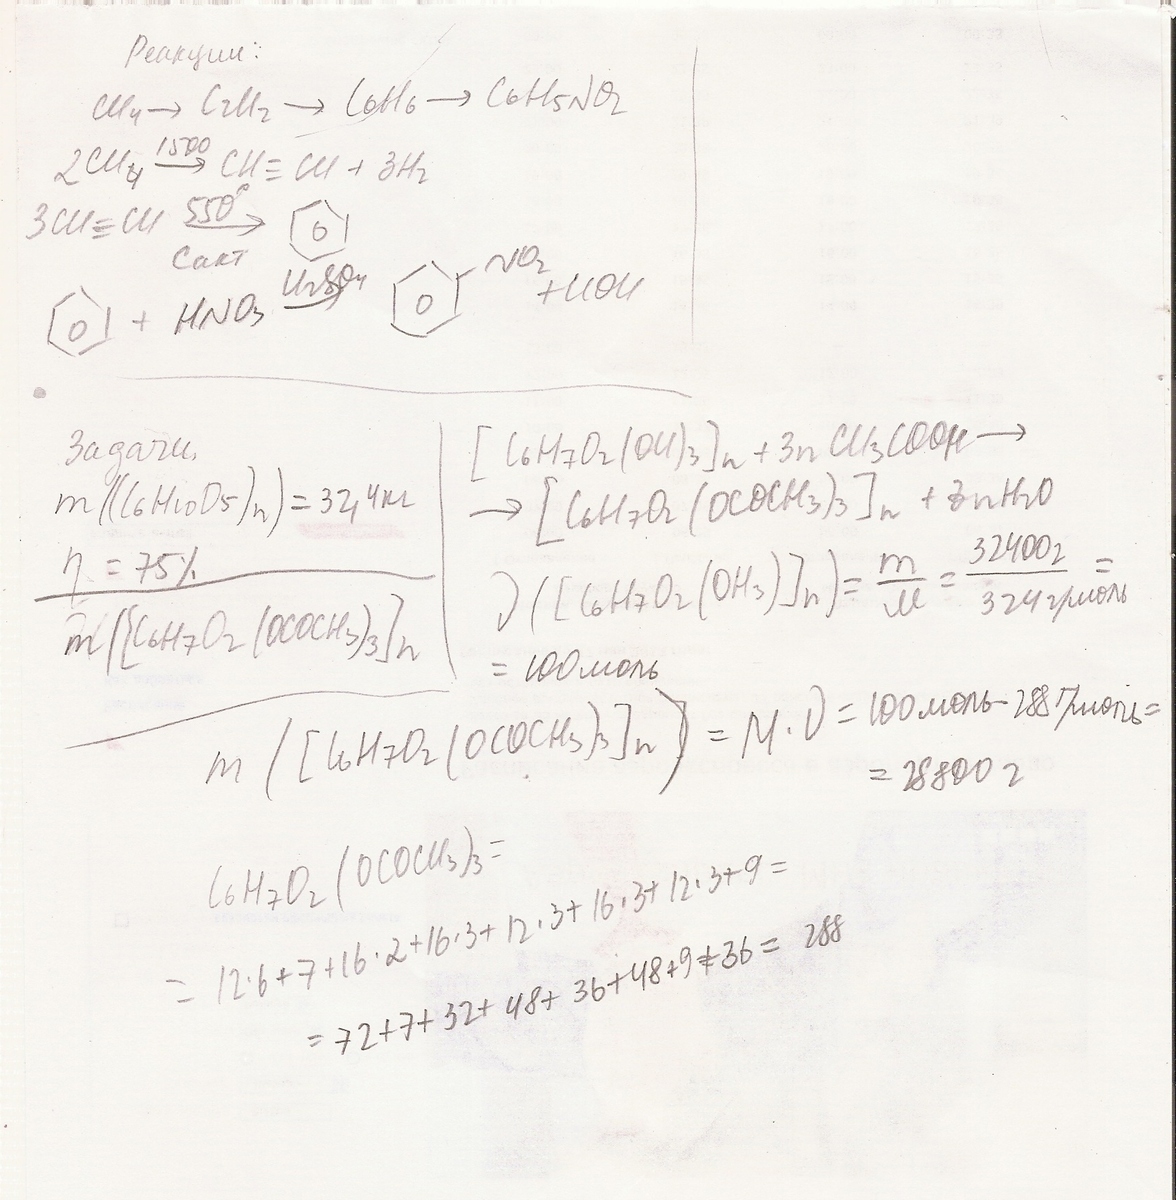 Реакции:
CH4 → C2H2 → C6H6 → C6H5NO2
2CH4 1500 → CH≡CH + 3H2
3CH≡CH 550°C → 
Cакт
+ HNO3 H2SO4 → NO2 + HOH
Задачи.
m((C6H10O5)n) = 32,4кг
η = 75%
m([C6H7O2(OCOCH3)3]n
[C6H7O2(OH)3]n + 3n CH3COOH →
→ [C6H7O2(OCOCH3)3]n + 3nH2O
ν([C6H7O2(OH3)]n) = m/M = 32400г/324г/моль =
= 100моль
m([C6H7O2(OCOCH3)3]n) = M·ν = 100моль·288г/моль =
= 28800г
C6H7O2(OCOCH3)3 =
= 12·6+7+16·2+16·3+12·3+16·3+12·3+9 =
= 72+7+32+48+36+48+9+36 = 288